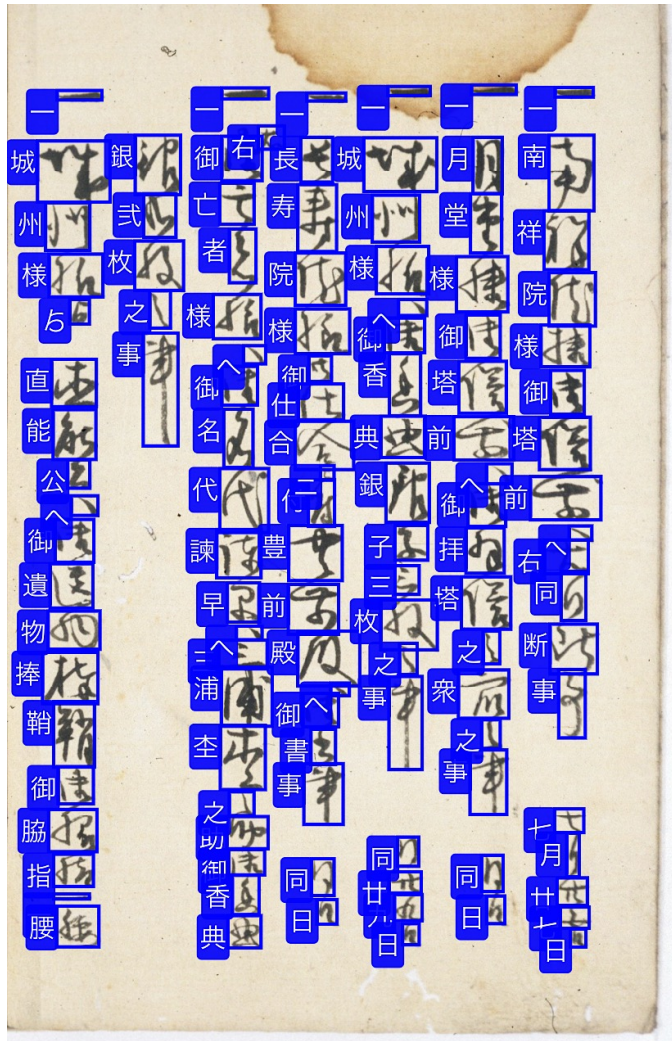 一南祥院様御塔前へ右同断事 七月廿七日
一月堂様御塔前へ御拝塔之衆之事 同日
一城州様へ御香典銀子三枚之事 同廿九日
一長寿院様御仕合ニ付豊前殿へ御書事 同日
一右御亡者様へ御名代諫早三浦杢之助御香典
銀弐枚之事
一城州様ゟ直能公へ御遺物捧鞘御脇指一腰